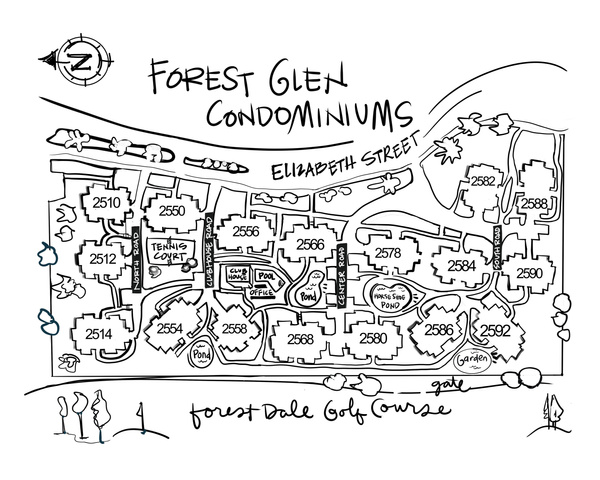 N
FOREST GLEN
CONDOMINIUMS
ELIZABETH STREET
2510
2550
2556
2566
2582
2588
2512
NORTH ROAD
TENNIS
COURT
CLUB
HOUSE
POOL
OFFICE
Pond
CENTER ROAD
2578
2584
SOUTH ROAD
2590
HORSE SHOE
POND
2514
2554
2558
2568
2580
2586
2592
Pond
Garden
gate
forest Dale Golf Course